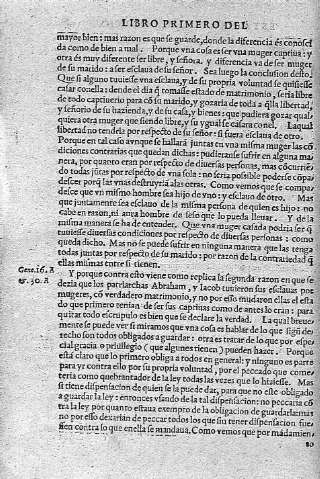 LIBRO PRIMERO DEL
mayor bien: mas razon es que se guarde, donde la diferencia es conosci
da como de bien a mal. Porque vna cosa es ser vna muger captiua: y
otra es muy diferente ser libre, y señora. y diferencia va de ser muger
de su marido: a ser esclaua de su señor. Sea luego la conclusion desto.
Que si alguno tuuiese vna esclaua, y de su propria voluntad se quisiesse
casar conella: dende el dia q̃ tomasse estado de matrimonio, seria libre
de todo captiuerio para cõ su marido, y gozaria de toda a q̃lla libertad,
y señorio de su hazienda, y de su casa, y bienes: que pudiera gozar qual
quiera otra muger que siendo libre, y su ygual se casara conel. Laqual
libertad no tendria por respecto de su señor: si fuera esclaua de otro.
Porque en tal caso avnque se hallarã juntas en vna misma muger las cõ
diciones contrarias que quedan dichas: pudieranse sufrir en alguna ma
nera, por quanto eran por respecto de diuersas personas, mas cõcurriẽ
do todas jũtas por respecto de vna sola: no seria possible poderse cõpa
descer porq̃ las vnas destruyriã las otras. Como vemos que se compa
desce que vn mismo hombre sea hijo de vno: y esclauo de otro. Mas
que juntamente sea esclauo de la misma persona de quien es hijo: no
cabe en razon, ni aura hombre de seso que lo pueda lleuar. Y de la
misma manera se ha de entender. Que vna muger casada podria ser q̃
tuuiesse diuersas condiciones por respecto de diuersas personas: como
queda dicho. Mas no se puede sufrir en ninguna manera que las tenga
todas juntas por respecto de su marido: por razon de la contrariedad q̃
ellas mismas entre si tienen.
Gene. 16. A
& 30. A
Y porque contra esto viene como replica la segunda razon en que se
dezia que los patriarchas Abraham, y Iacob tuuieron sus esclauas por
mugeres, cõ verdadero matrimonio, y no por esso mudaron ellas el esta
do que primero tenian de ser sus captiuas como de antes lo eran: para
quitar todo escrupulo es bien que se declare la verdad. La qual breue
mente se puede ver si miramos que vna cosa es hablar de lo que segũ de
recho son todos obligados a guardar: otra es tratar de lo que por espe
cial gracia o priuilegio (que algunos tienen) pueden hazer. Porque
està claro que lo primero obliga a todos en general: y ninguno es parte
para yr contra ello por su propria voluntad, por el peccado que come
teria como quebrantador de la ley todas las vezes que lo hiziesse. Mas
si tiene dispensacion de quien se la puede dar, para que no este obligado
a guardar la ley: entonces vsando de la tal dispensacion: no peccaria cõ
tra la ley por quanto estaua exempto de la obligacion de guardarla: mas
no por esso dexarian de peccar todos los que sin tener dispensacion fue
ssen contra lo que enella se mandaua. Como vemos que por mãdamien
to